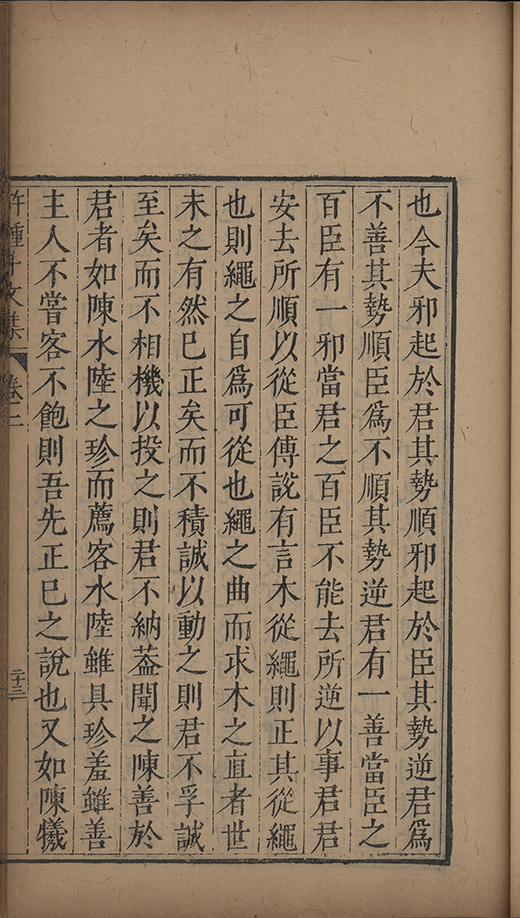 也今夫邪起於君其勢順邪起於臣其勢逆君爲
不善其勢順臣爲不順其勢逆君有一善當臣之
百臣有一邪當君之百臣不能去所逆以事君君
安去所順以從臣傅說有言木從繩則正其從繩
也則繩之自爲可從也繩之曲而求木之直者世
未之有然已正矣而不積誠以動之則君不孚誠
至矣而不相機以投之則君不納葢聞之陳善於
君者如陳水陸之珍而薦客水陸雖具珍羞雖善
主人不嘗客不飽則吾先正已之說也又如陳犧
許鍾斗文集
卷二
二十三